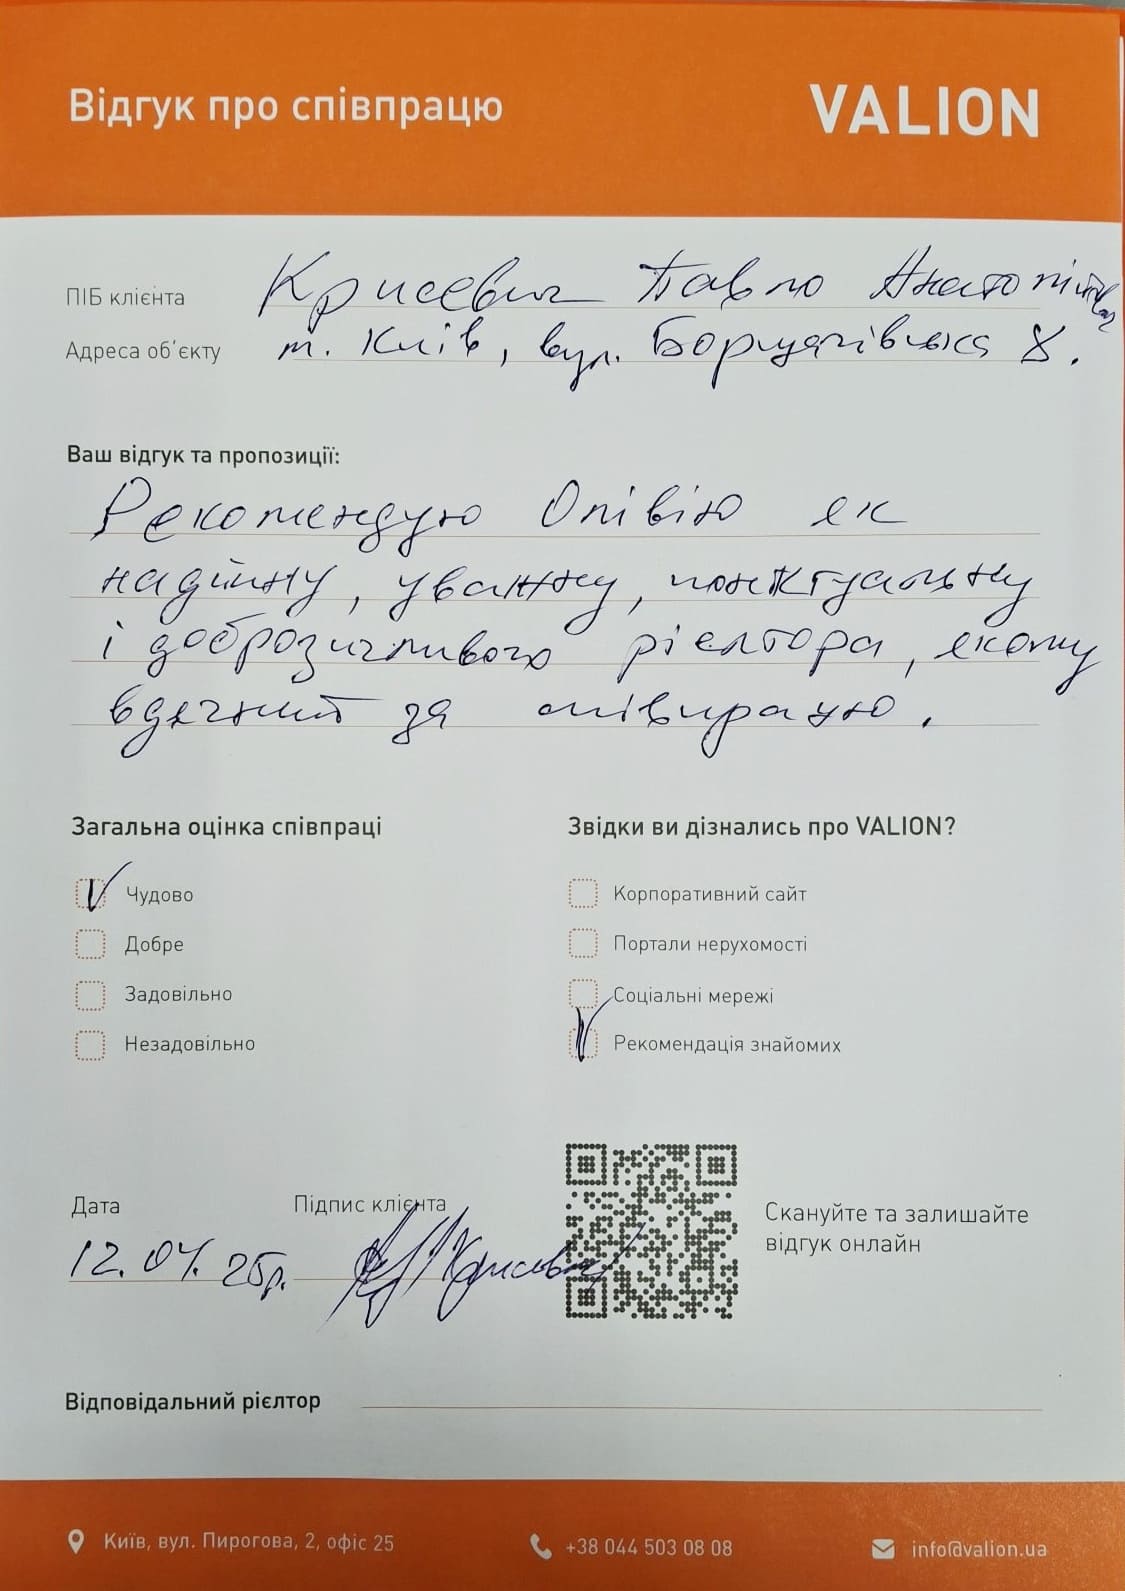 Відгук про співпрацю VALION
ПІБ клієнта Крисевич Павло Анатолійович
Адреса об'єкту м. Київ, вул. Борщагівська 8.
Ваш відгук та пропозиції:
Рекомендую Олівію як
надійну, уважну, понктуальну
і доброзичливого рієлтора, якому
вдячний за співпрацю.
Загальна оцінка співпраці
Чудово
Добре
Задовільно
Незадовільно
Звідки ви дізнались про VALION?
Корпоративний сайт
Портали нерухомості
Соціальні мережі
Рекомендація знайомих
Дата 12.04.25р.
Підпис клієнта
Скануйте та залишайте
відгук онлайн
Відповідальний рієлтор
Київ, вул. Пирогова, 2, офіс 25 +38 044 503 08 08 info@valion.ua